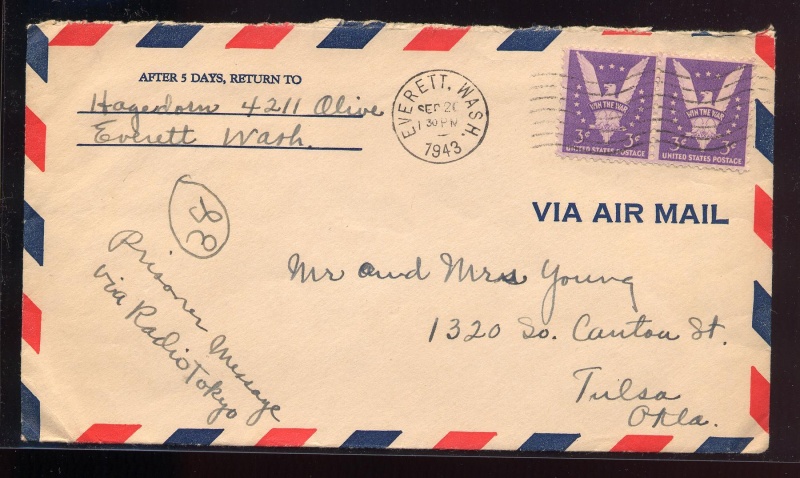 AFTER 5 DAYS, RETURN TO
Hagedorn 4211 Olive
Everett Wash.
EVERETT. WASH.
SEP 20
1 30 PM
1943
WIN THE WAR
3¢ 3¢
UNITED STATES POSTAGE
WIN THE WAR
3¢ 3¢
UNITED STATES POSTAGE
VIA AIR MAIL
Prisoner Message
via Radio Tokyo
Mr and Mrs Young
1320 So. Canton St.
Tulsa
Okla.